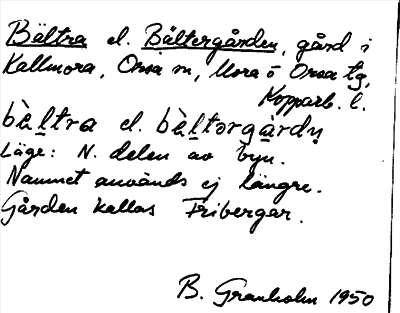 Bältra el. Bältergården, gård i
Kallmora, Orsa sn, Mora o Orsa tg,
Kopparb. l.
bèl̲tra el. bèl̲tərgà̲rdṇ
Läge: N. delen av byn.
Namnet används ej längre.
Gården kallas Fribergar.
B. Granholm 1950